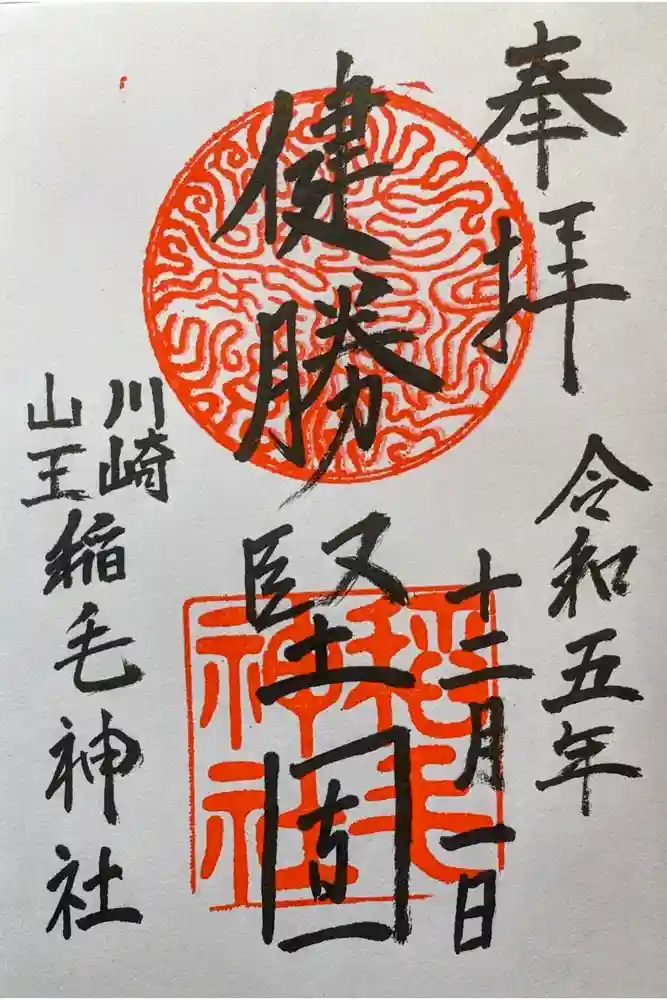 奉拝
令和五年
十二月一日
健勝堅固
川崎
山王
稲毛神社
稲毛神社